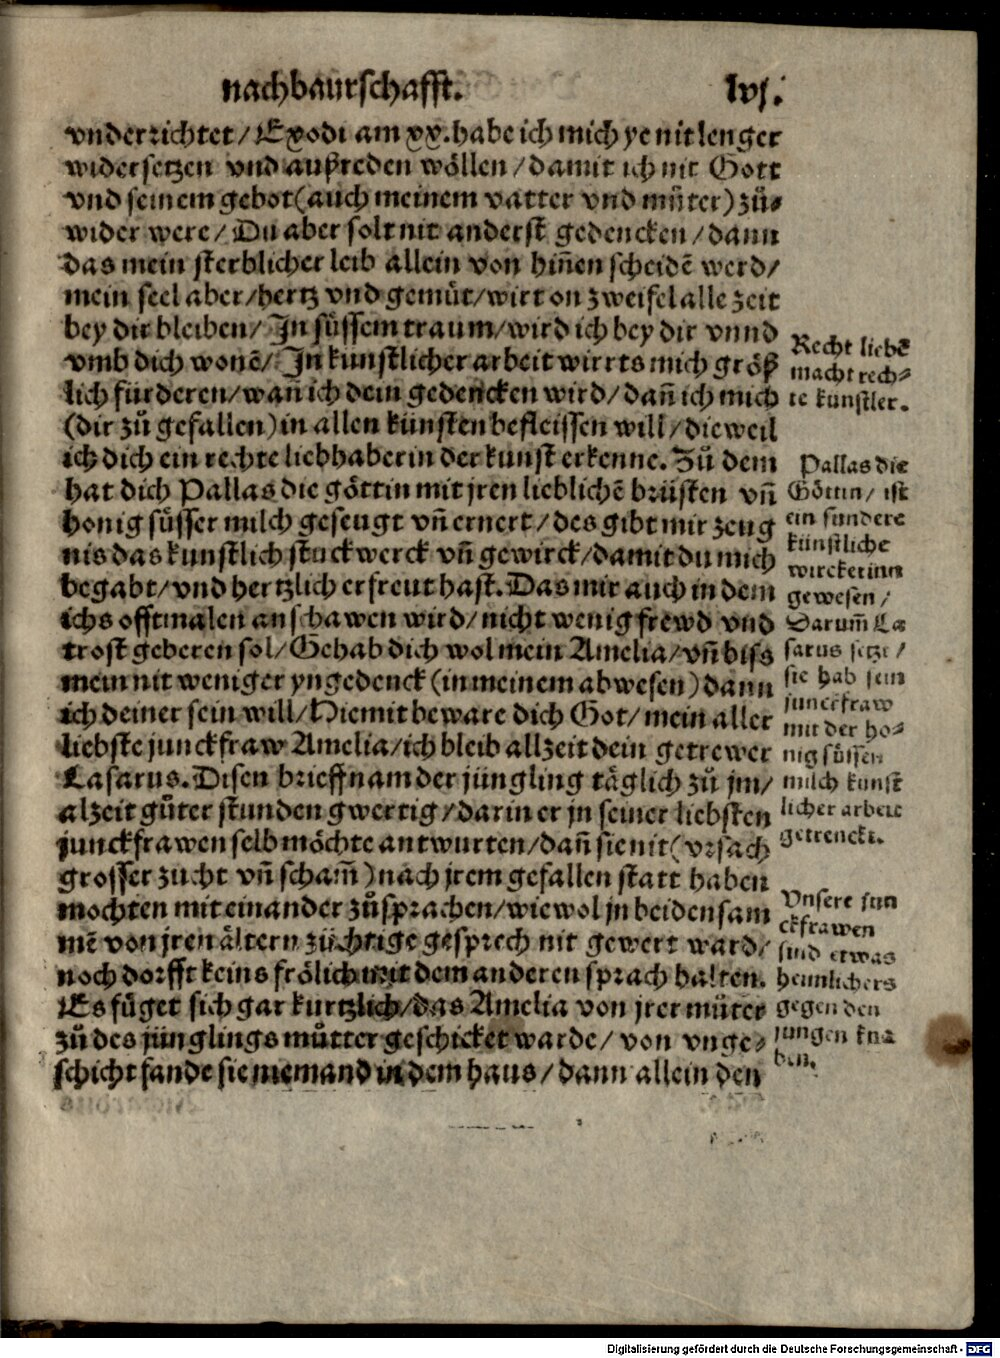 nachbaurschafft. lvj.
vnderrichtet / Exodi am xx. habe ich mich ye nit lenger
widersetzen vnd außreden wöllen / damit ich nit Gott
vnd seinem gebot (auch meinem vatter vnd můter) zů-
wider were / Du aber solt nit anderst gedencken / dann
das mein sterblicher leib allein von hiñen scheidē werd /
mein seel aber / hertz vnd gemüt / wirt on zweifel alle zeit
bey dir bleiben / In süssem traum / wird ich bey dir vnnd
vmb dich wonē / In kunstlicher arbeit wirrts mich größ
lich fürderen / wañ ich dein gedencken wird / dañ ich mich
(dir zů gefallen) in allen künsten befleissen will / dieweil
ich dich ein rechte liebhaberin der kunst erkenne. Zů dem
hat dich Pallas die göttin mit jren lieblichē brüsten vñ
honig süsser milch geseugt vñ ernert / des gibt mir zeug
nis das kunstlich stuckwerck vñ gewirck / damit du mich
begabt / vnd hertzlich erfreut hast. Das mir auch in dem
ichs offtmalen anschawen wird / nicht wenig frewd vnd
trost geberen sol / Gehab dich wol mein Amelia / vñ biss
mein nit weniger yngedenck (in meinem abwesen) dann
ich deiner sein will / Hiemit beware dich Got / mein aller
liebste junckfraw Amelia / ich bleib allzeit dein getrewer
Lasarus. Disen brieff nam der jüngling täglich zů jm /
alzeit gůter stunden gwertig / darin er jn seiner liebsten
junckfrawen selb möchte antwurten / dañ sie nit (vrsach
grosser zucht vñ scham̃) nach jrem gefallen statt haben
mochten mit einander zůsprachen / wiewol jn beiden sam
mē von jren ältern züchtige gesprech nit gewert ward /
noch dorfft keins frölich mit dem anderen sprach halten.
Es füget sich gar kurtzlich / das Amelia von jrer můter
zů des jünglings můtter geschicket warde / von vnge-
schicht fande sie niemand in dem haus / dann allein den
Recht liebē
macht rech-
te kunstler.
Pallas die
Göttin / ist
ein sundere
künstliche
wirckerinn
gewesen /
Darum̃ La
sarus setzt /
sie hab sein
junckfraw
mit der ho-
nig süssen
milch kunst
licher arbeit
getrenckt.
Vnsere jun
ckfrawen
sind etwas
heimlichers
gegen den
jungen kna
ben.
Digitalisierung gefördert durch die Deutsche Forschungsgemeinschaft - DFG